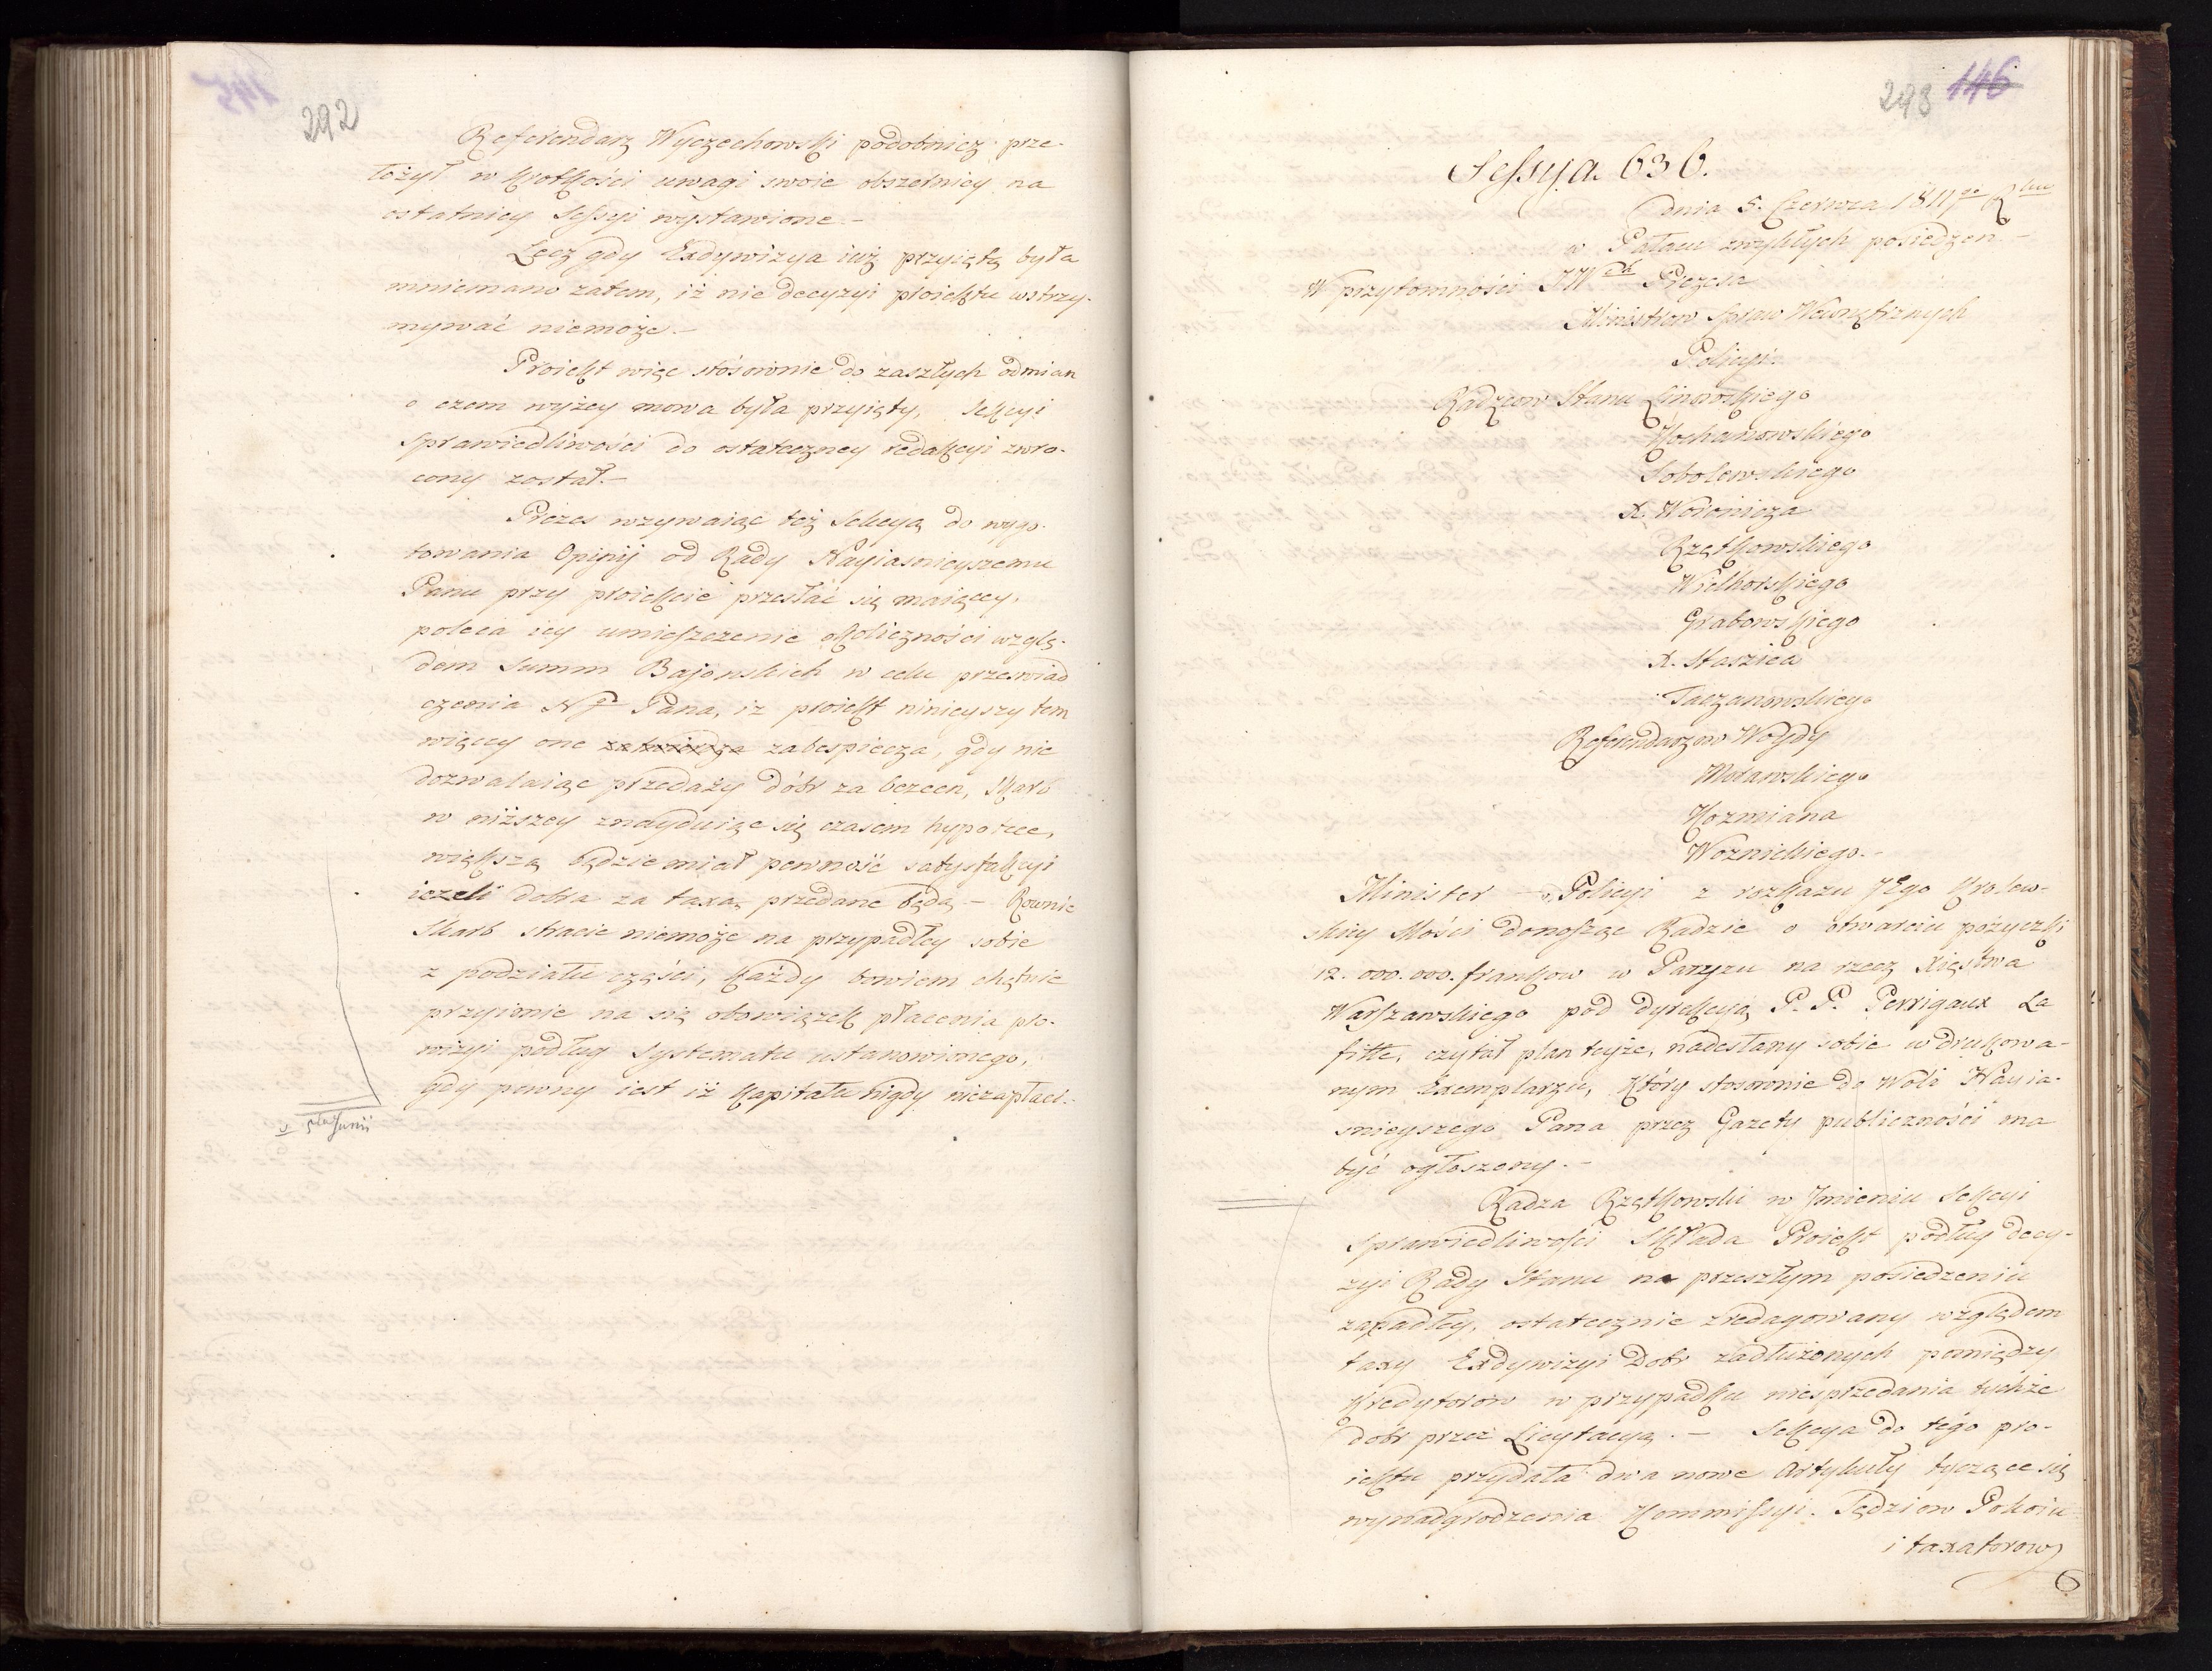 292
Referendarz Wyczechowski podobnież prze-
łożył w krotkości uwagi swoie obszerniey na
ostatniey Sessyi wystawione.-
Lecz gdy Exdywizya iuż przyiętą była
mniemano zatem, iż nie decyzyi proiektu wstrzy-
mywać niemoże.-
Proiekt więc stósownie do zaszłych odmian
o czem wyżey mowa była przyięty, Sekcyi
Sprawiedliwości do ostateczney redakcyi zwro-
cony został.-
Prezes wzywaiąc też Sekcyą do wygo-
towania Opinij od Rady Nayiasnieyszemu
Panu przy proiekcie przesłać się maiącey,
poleca iey umieszczenie okoliczności wzglę-
dem Summ Bajonskich w celu przeswiad
czenia N. Pana, iż proiekt ninieyszy tem
więcey one zatwierdza zabespiecza, gdy nie
dozwalaiąc przedaży dóbr za bezcen, Skarb
w niższey znayduiąc się czasem hypotece,
większą będzie miał pewność satysfakcyi
ieżeli dobra za taxą przedane będą - Rownie
Skarb stracić niemoże na przypadłey sobie
z podziału części, każdy bowiem chętnie
przyimie na się obowiązek płacenia pro-
wizyi podług Systematu ustanowionego,
gdy pewny iest iż Kapitału nigdy niezapłaci.-
5 Junii
293 146
Sessya 636.
Dnia 5. Czerwca 1811go Rku
w Pałacu zwykłych posiedzeń.-
W przytomności JWch Prezesa
Ministrow Spraw Wewnętrznych
Policyi
Radzcow Stanu Linowskiego
Kochanowskiego
Sobolewskiego
X. Woronicza
Rzętkowskiego
Wielhorskiego
Grabowskiego
X. Staszica
Taczanowskiego
Referendarzow Woydy
Morawskiego
Kozmiana
Woznickiego.-
Minister Policyi z rozkazu JEgo Krolew-
skiey Mości donosząc Radzie o otwarciu pożyczki
12.000.000. frankow w Paryżu na rzecz Xięstwa
Warszawskiego pod dyrekcyą P. P. Perrigaux La
fitte, czytał plan teyże, nadesłany sobie w drukowa-
nym Exemplarzu, który stosownie do Woli Nayia-
snieyszego Pana przez Gazety publiczności ma
być ogłoszony.-
Radzca Rzętkowski w Jmieniu Sekcyi
Sprawiedliwości składa Proiekt podług decy-
zyi Rady Stanu na przeszłym posiedzeniu
zapadłey, ostatecznie zredagowany względem
taxy Exdywizyi Dobr zadłużonych pomiędzy
Kredytorów w przypadku niesprzedania tychże
dóbr przez Licytacyą.- Sekcya do tego pro-
iektu przydała dwa nowe Artykuły tyczące się
wynadgrodzenia Kommissyi, Sędziow Pokoiu
i taxatorow